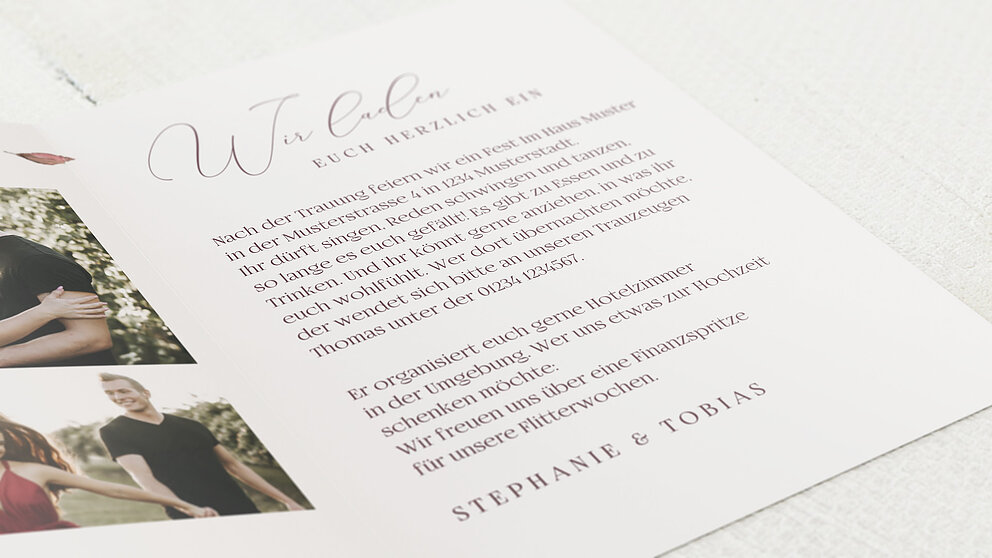 Wir laden
EUCH HERZLICH EIN
Nach der Trauung feiern wir ein Fest im Haus Muster
in der Musterstrasse 4 in 1234 Musterstadt.
Ihr dürft singen, Reden schwingen und tanzen,
so lange es euch gefällt! Es gibt zu Essen und zu
Trinken. Und ihr könnt gerne anziehen, in was ihr
euch wohlfühlt. Wer dort übernachten möchte,
der wendet sich bitte an unseren Trauzeugen
Thomas unter der 01234 1234567.
Er organisiert euch gerne Hotelzimmer
in der Umgebung. Wer uns etwas zur Hochzeit
schenken möchte:
Wir freuen uns über eine Finanzspritze
für unsere Flitterwochen.
STEPHANIE & TOBIAS